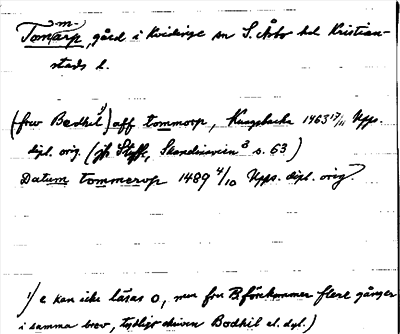 m.
Tomarp, gård i Kvidinge sn S. Åsbo hd Kristian-
stads l.
(frw Bodhil 1)) aff tommorp, Kungsbacka 1463 17/11 Upps.
dipl. orig. (jfr Styffe, Skandinavien 3 s. 63)
Datum tommerop 1489 4/10 Upps. dipl. orig.
1) e kan icke läsas o, men fru B. förekommer flere gånger
i samma brev, tydligt skriven Bodhil el. dyl.)